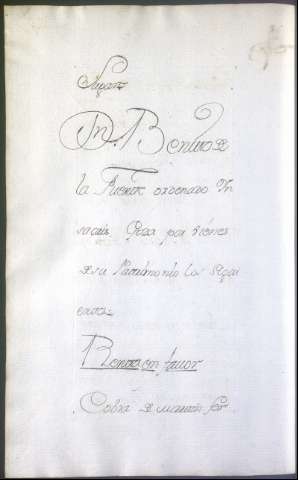 Dn. Benito de
la Fuente ordenado In
sacris Goza por vienes
de su Patrimonio los sigui
entes
Renta en favor
Cobra de